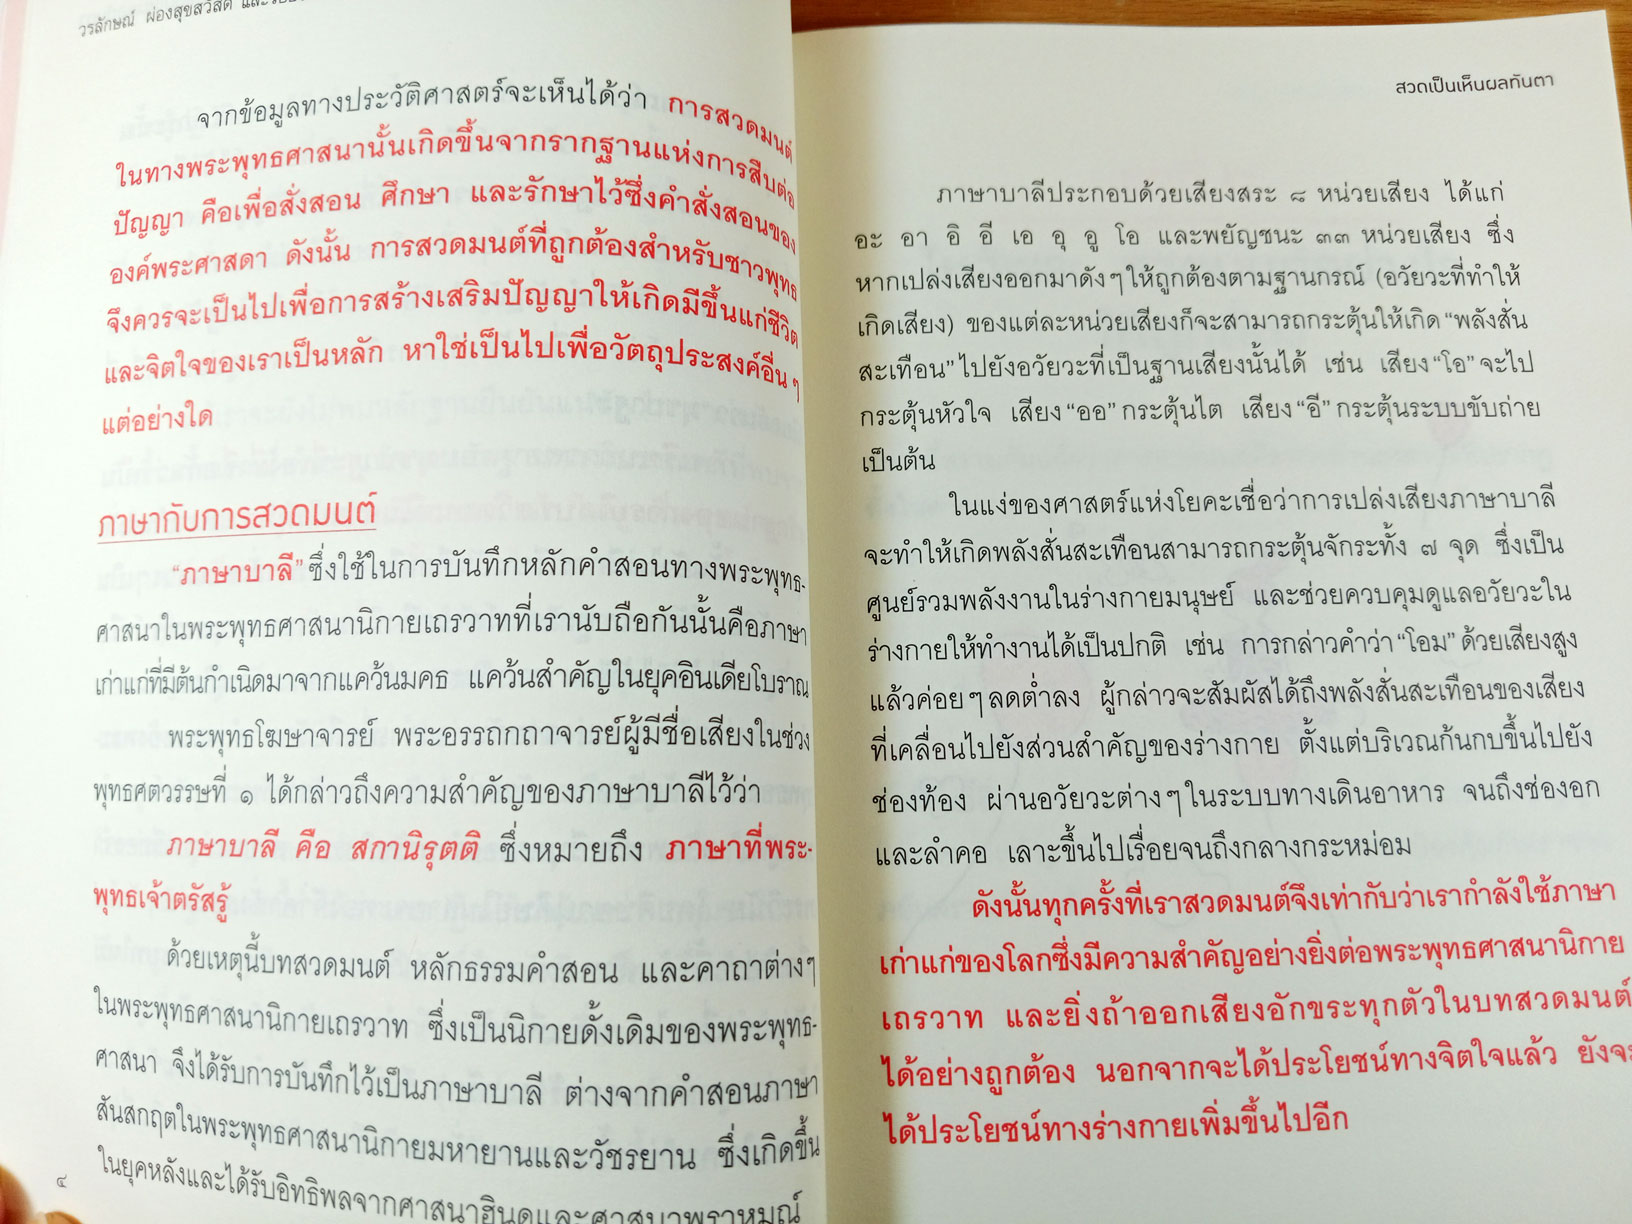 วรลักษณ์ ผ่องสุขสวัสดิ์
จากข้อมูลทางประวัติศาสตร์จะเห็นได้ว่า การสวดมนต์
ในทางพระพุทธศาสนานั้นเกิดขึ้นจากรากฐานแห่งการสืบต่อ
ปัญญา คือเพื่อสั่งสอน ศึกษา และรักษาไว้ซึ่งคำสั่งสอนของ
องค์พระศาสดา ดังนั้น การสวดมนต์ที่ถูกต้องสำหรับชาวพุทธ
จึงควรจะเป็นไปเพื่อการสร้างเสริมปัญญาให้เกิดมีขึ้นแก่ชีวิต
และจิตใจของเราเป็นหลัก หาใช่เป็นไปเพื่อวัตถุประสงค์อื่น ๆ
แต่อย่างใด
ภาษากับการสวดมนต์
“ภาษาบาลี” ซึ่งใช้ในการบันทึกหลักคำสอนทางพระพุทธ-
ศาสนาในพระพุทธศาสนานิกายเถรวาทที่เรานับถือกันนั้นคือภาษา
เก่าแก่ที่มีต้นกำเนิดมาจากแคว้นมคธ แคว้นสำคัญในยุคอินเดียโบราณ
พระพุทธโฆษาจารย์ พระอรรถกถาจารย์ผู้มีชื่อเสียงในช่วง
พุทธศตวรรษที่ ๑ ได้กล่าวถึงความสำคัญของภาษาบาลีไว้ว่า
ภาษาบาลี คือ สกานิรุตติ ซึ่งหมายถึง ภาษาที่พระ-
พุทธเจ้าตรัสรู้
ด้วยเหตุนี้บทสวดมนต์ หลักธรรมคำสอน และคาถาต่างๆ
ในพระพุทธศาสนานิกายเถรวาท ซึ่งเป็นนิกายดั้งเดิมของพระพุทธ-
ศาสนา จึงได้รับการบันทึกไว้เป็นภาษาบาลี ต่างจากคำสอนภาษา
สันสกฤตในพระพุทธศาสนานิกายมหายานและวัชรยาน ซึ่งเกิดขึ้น
ในยุคหลังและได้รับอิทธิพลจากศาสนาฮินดูและศาสนาพราหมณ์
๔
สวดเป็นเห็นผลทันตา
ภาษาบาลีประกอบด้วยเสียงสระ ๘ หน่วยเสียง ได้แก่
อะ อา อิ อี เอ อุ อู โอ และพยัญชนะ ๓๓ หน่วยเสียง ซึ่ง
หากเปล่งเสียงออกมาดังๆ ให้ถูกต้องตามฐานกรณ์ (อวัยวะที่ทำให้
เกิดเสียง) ของแต่ละหน่วยเสียงก็จะสามารถกระตุ้นให้เกิด “พลังสั่น
สะเทือน” ไปยังอวัยวะที่เป็นฐานเสียงนั้นได้ เช่น เสียง “โอ” จะไป
กระตุ้นหัวใจ เสียง “ออ” กระตุ้นไต เสียง “อี” กระตุ้นระบบขับถ่าย
เป็นต้น
ในแง่ของศาสตร์แห่งโยคะเชื่อว่าการเปล่งเสียงภาษาบาลี
จะทำให้เกิดพลังสั่นสะเทือนสามารถกระตุ้นจักระทั้ง ๗ จุด ซึ่งเป็น
ศูนย์รวมพลังงานในร่างกายมนุษย์ และช่วยควบคุมดูแลอวัยวะใน
ร่างกายให้ทำงานได้เป็นปกติ เช่น การกล่าวคำว่า “โอม” ด้วยเสียงสูง
แล้วค่อยๆ ลดต่ำลง ผู้กล่าวจะสัมผัสได้ถึงพลังสั่นสะเทือนของเสียง
ที่เคลื่อนไปยังส่วนสำคัญของร่างกาย ตั้งแต่บริเวณก้นกบขึ้นไปยัง
ช่องท้อง ผ่านอวัยวะต่างๆ ในระบบทางเดินอาหาร จนถึงช่องอก
และลำคอ เลาะขึ้นไปเรื่อยจนถึงกลางกระหม่อม
ดังนั้นทุกครั้งที่เราสวดมนต์จึงเท่ากับว่าเรากำลังใช้ภาษา
เก่าแก่ของโลกซึ่งมีความสำคัญอย่างยิ่งต่อพระพุทธศาสนานิกาย
เถรวาท และยิ่งถ้าออกเสียงอักขระทุกตัวในบทสวดมนต์
ได้อย่างถูกต้อง นอกจากจะได้ประโยชน์ทางจิตใจแล้ว ยังจะ
ได้ประโยชน์ทางร่างกายเพิ่มขึ้นไปอีก